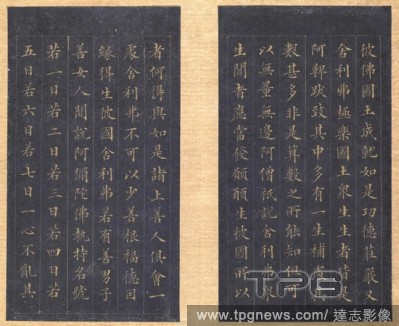 彼佛國土成就如是功德莊嚴又
舍利弗極樂國土眾生生者皆是
阿鞞跋致其中多有一生補
數甚多非是算數之所能知但可
以無量無邊阿僧祇說舍利弗眾
生聞者應當發願願生彼國所以
者何得與如是諸上善人俱會一
處舍利弗不可以少善根福德因
緣得生彼國舍利弗若有善男子
善女人聞說阿彌陀佛執持名號
若一日若二日若三日若四日若
五日若六日若七日一心不亂其
TPG
www.tpgimages.com 達志影像